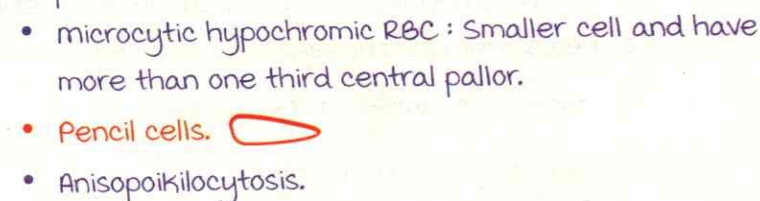 • microcytic hypochromic RBC : Smaller cell and have
more than one third central pallor.
• Pencil cells.
• Anisopoikilocytosis.